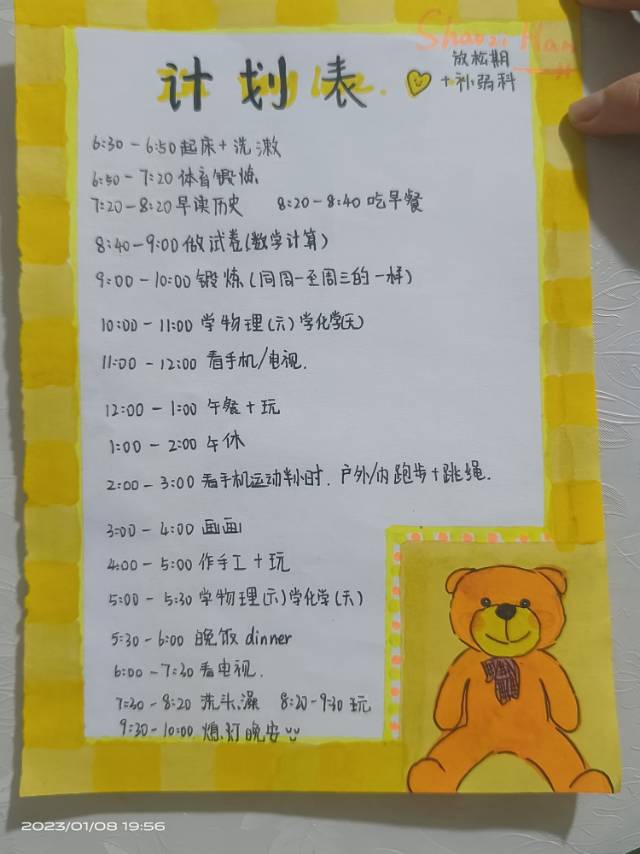 Shaozi Han
计划表
放松期
+补弱科
6:30 - 6:50 起床+洗漱
6:50 - 7:20 体育锻炼
7:20 - 8:20 早读历史 8:20 - 8:40 吃早餐
8:40 - 9:00 做试卷(数学计算)
9:00 - 10:00 锻炼(同周一至周三的一样)
10:00 - 11:00 学物理(六)学化学(天)
11:00 - 12:00 看手机/电视.
12:00 - 1:00 午餐+玩
1:00 - 2:00 午休
2:00 - 3:00 看手机运动半小时. 户外/内跑步+跳绳.
3:00 - 4:00 画画
4:00 - 5:00 作手工+玩
5:00 - 5:30 学物理(六)学化学(天)
5:30 - 6:00 晚饭 dinner
6:00 - 7:30 看电视.
7:30 - 8:20 洗头、澡 8:20 - 9:30 玩
9:30 - 10:00 熄灯晚安
2023/01/08 19:56